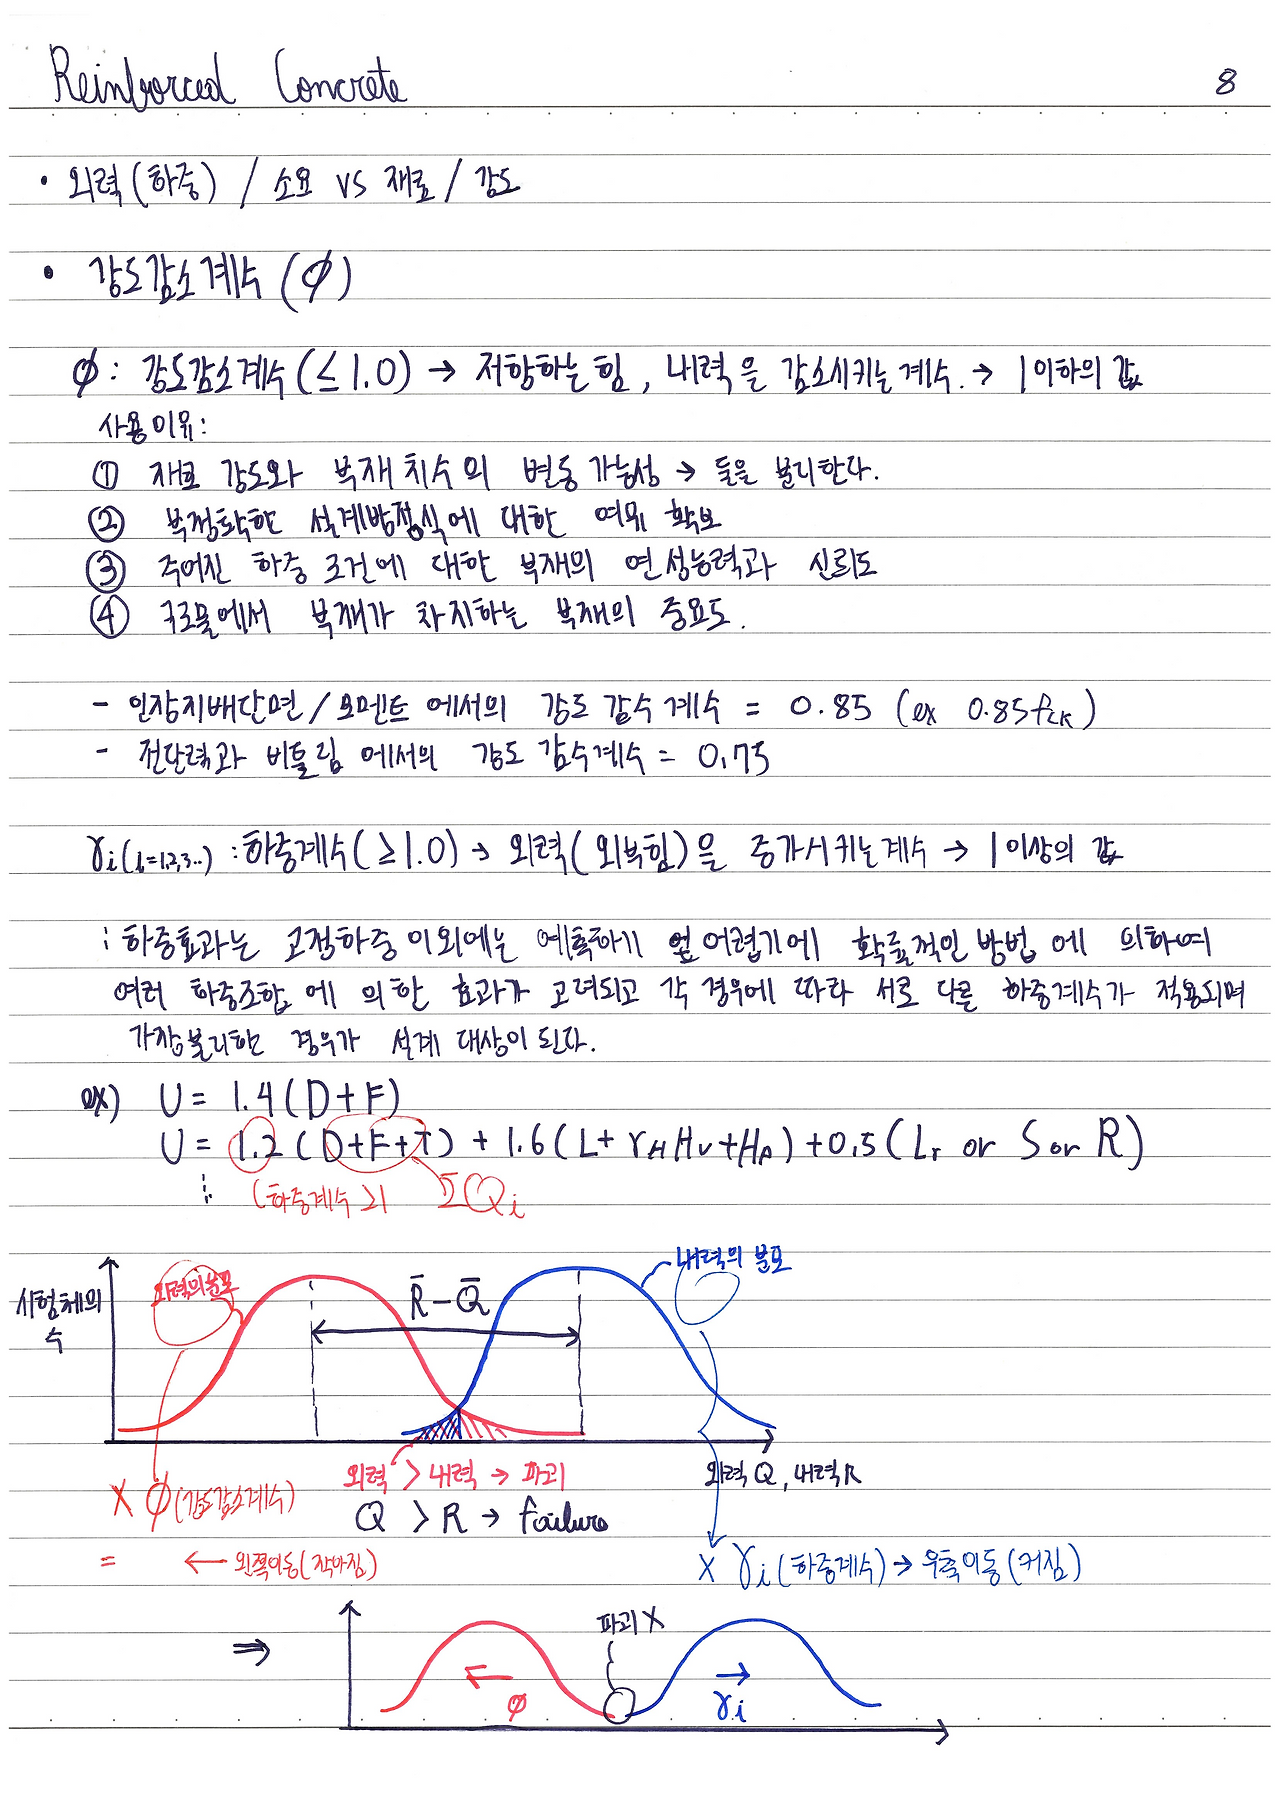 Reinforced Concrete 8
• 외력(하중) / 소요 VS 재료 / 강도
• 강도감소계수(ϕ)
ϕ: 강도감소계수(≤1.0) → 저항하는 힘, 내력을 감소시키는 계수. → 1이하의 값
사용이유:
① 재료 강도와 부재 치수의 변동 가능성 → 둘을 분리한다.
② 부정확한 설계방정식에 대한 여유 확보
③ 주어진 하중 조건에 대한 부재의 연성능력과 신뢰도
④ 구조물에서 부재가 차지하는 부재의 중요도.
- 인장지배단면/모멘트 에서의 강도 감수 계수 = 0.85 (ex 0.85fck)
- 전단력과 비틀림 에서의 강도 감수계수 = 0.75
γi(i=1,2,3..) : 하중계수(≥1.0) → 외력(외부힘)을 증가시키는계수 → 1이상의 값
: 하중효과는 고정하중 이외에는 예측하기 어렵기에 확률적인 방법 에 의하여
여러 하중조합 에 의한 효과가 고려되고 각 경우에 따라 서로 다른 하중계수가 적용되며
가장불리한 경우가 설계 대상이 된다.
ex) U = 1.4(D+F)
U = 1.2(D+F+T) + 1.6(L+γHHv+HA)+0.5(Lr or S or R)
(하중계수>1 ΣQi
외력의분포 내력의 분포
시험체의
수
R̄-Q̄
외력 > 내력 → 파괴 외력 Q, 내력 R
× ϕ(강도감소계수) Q > R → failure
= ← 왼쪽이동(작아짐) × γi(하중계수) → 우측이동(커짐)
⇒ 파괴 X
← ϕ → γi